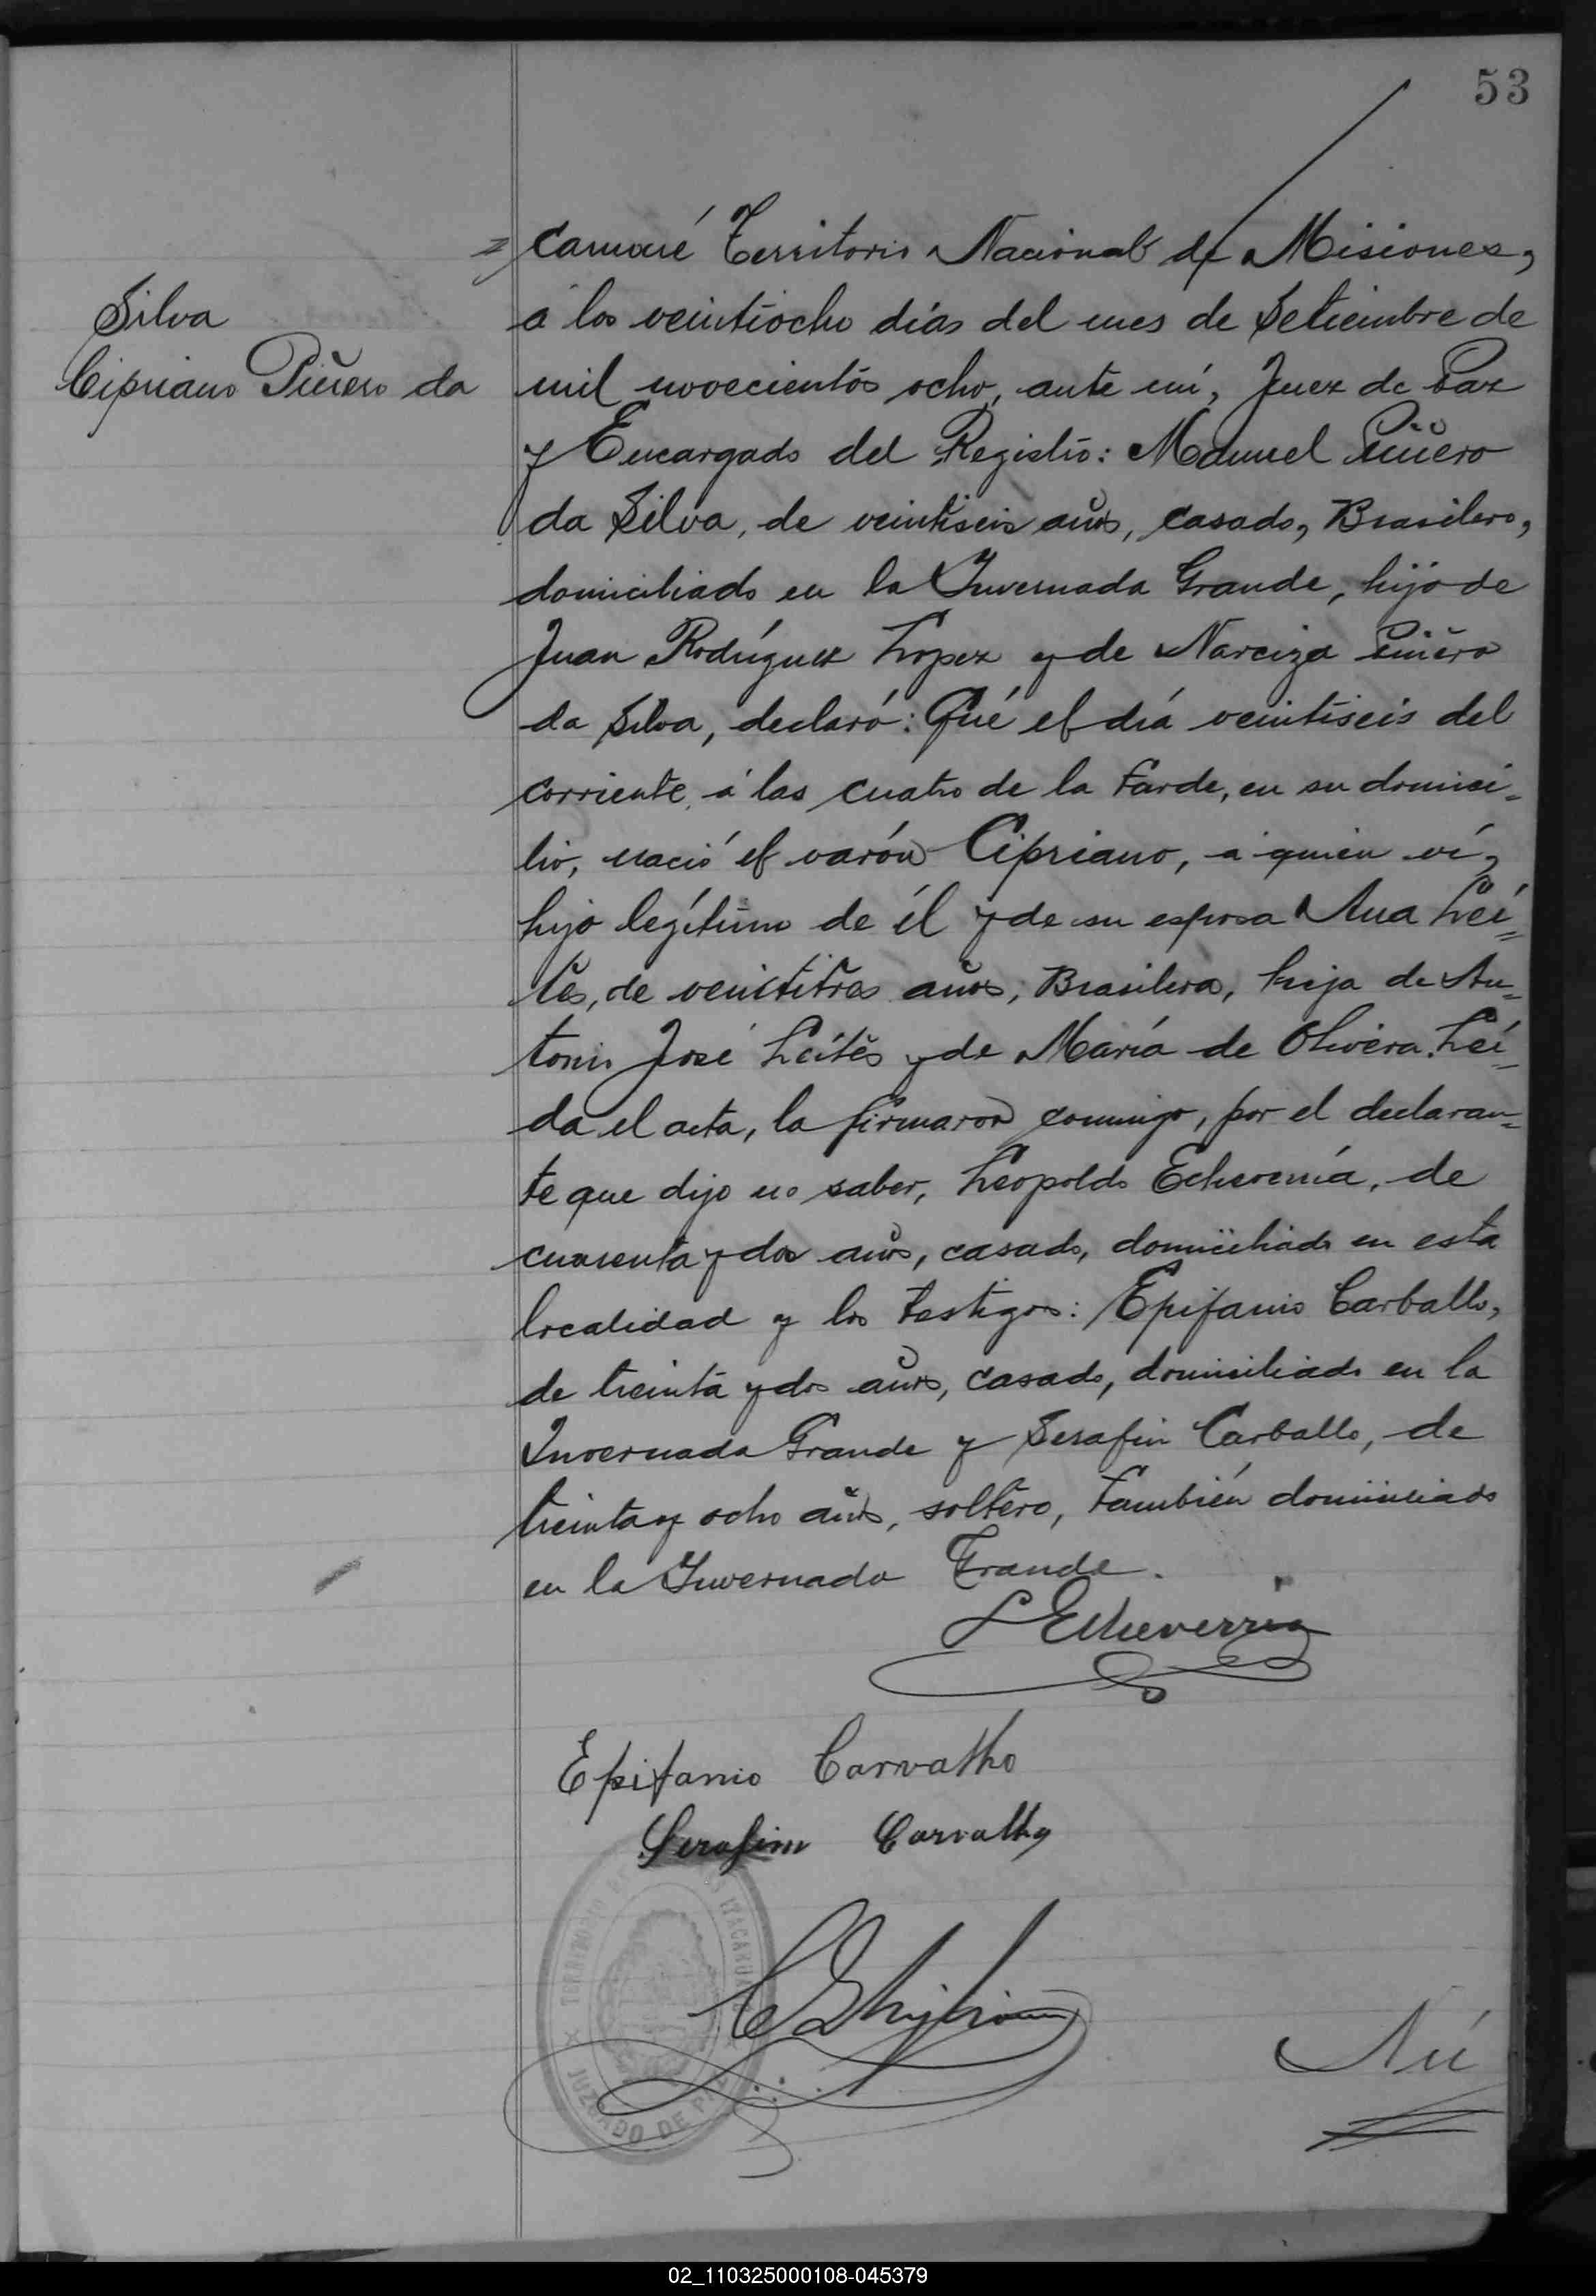 53
Silva
Cipriano Piñero da
= caruaré Territorio Nacional de Misiones,
á los veintiocho dias del mes de Setiembre de
mil novecientos ocho, ante mí, Juez de Paz
y Encargado del Registro: Manuel Piñero
da Silva, de veintiseis años, casado, Brasilero,
domiciliado en la Invernada Grande, hijo de
Juan Rodríguez Lopez y de Narciza Piñero
da Silva, declaró: Qué el día veintiseis del
corriente, á las cuatro de la tarde, en su domici=
lio, nació el varón Cipriano, á quien ví,
hijo legítimo de él y de su esposa Ana Léi=
tes, de veintitres años, Brasilera, hija de An=
tonio José Leítes y de María de Olivera. Léi=
da el acta, la firmaron conmigo, por el declaran=
te que dijo no saber, Leopoldo Echeverría, de
cuarenta y dos años, casado, domiciliado en esta
localidad y los testigos: Epifanio Carballo,
de treinta y dos años, casado, domiciliado en la
Invernada Grande y Serafin Carballo, de
treinta y ocho años, soltero, también domiciliado
en la Invernada Grande.
L Etcheverria
Epifanio Carvalho
Serafim Carvalho
TERRITORIO ITACARUARÉ
JUZGADO DE PAZ
Nú
02_110325000108-045379